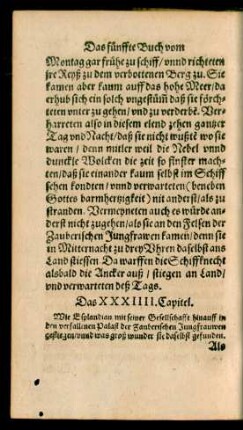 Das fünffte Buch vom
Montag gar frühe zu schiff/ vnnd richteten
jre Reyß zu dem verbottenen Berg zu. Sie
kamen aber kaum auff das hohe Meer/ da
erhub sich ein solch vngestüm̃ daß sie förch-
teten vnter zu gehen/ vnd zu verderbē. Ver-
harreten also in diesem elend zehen gantzer
Tag vnd Nacht/ daß sie nicht wußtē wo sie
waren/ denn mitler weil die Nebel vnnd
dunckle Wolcken die zeit so finster mach-
ten/ daß sie einander kaum selbst im Schiff
sehen kondten/ vnnd verwarteten (beneben
Gottes barmhertzigkeit) nit anderst/ als zu
stranden. Vermeyneten auch es würde an-
derst nicht zugehen/ als sie an den Felsen der
Zauberischen Jungfrawen kamen/ denn sie
in Mitternacht zu drey Vhren daselbst ans
Land stiessen Da warffen die Schiffknecht
alsbald die Ancker auß/ stiegen an Land/
vnd verwarteten deß Tags.
Das XXXIIII. Capitel.
Wie Esplandian mit seiner Gesellschafft hinauff in
den verfallenen Palast der Zauberischen Jungfrauwen
gestiegen/ vnd was groß wunder sie daselbst gefunden.
Als